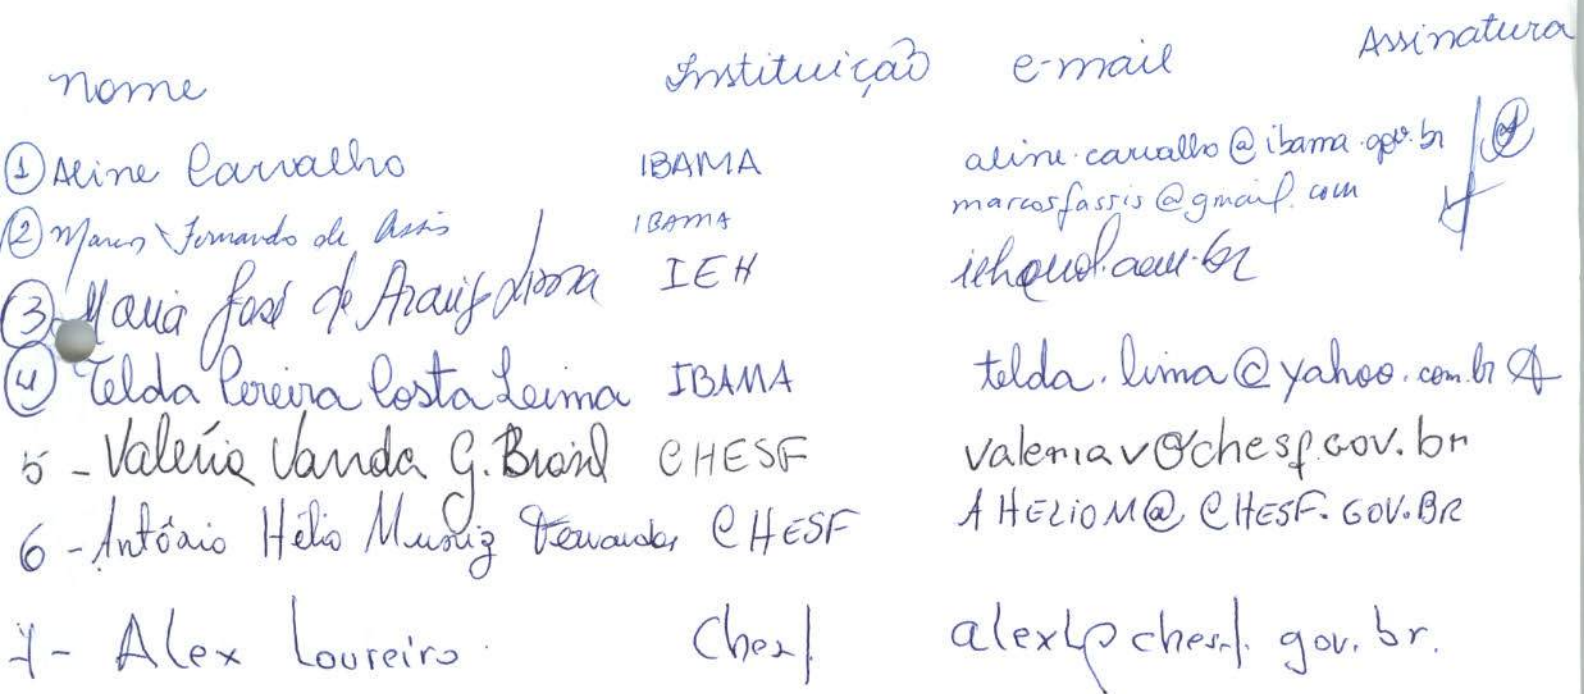 Nome Instituição e-mail Assinatura
① Aline Carvalho IBAMA aline.carvalho@ibama.gov.br
② Marcos Fernando de Assis IBAMA marcosfassis@gmail.com
③ Maria José de Araujo IEH
④ Telda Pereira Costa Leima IBAMA telda.lima@yahoo.com.br
5 - Valéria Vanda G. Brasil CHESF valeriav@chesf.gov.br
6 - Antônio Hélio Muniz Fernandes CHESF AHELIOM@CHESF.GOV.BR
7 - Alex Loureiro. Chesf alexl@chesf.gov.br.